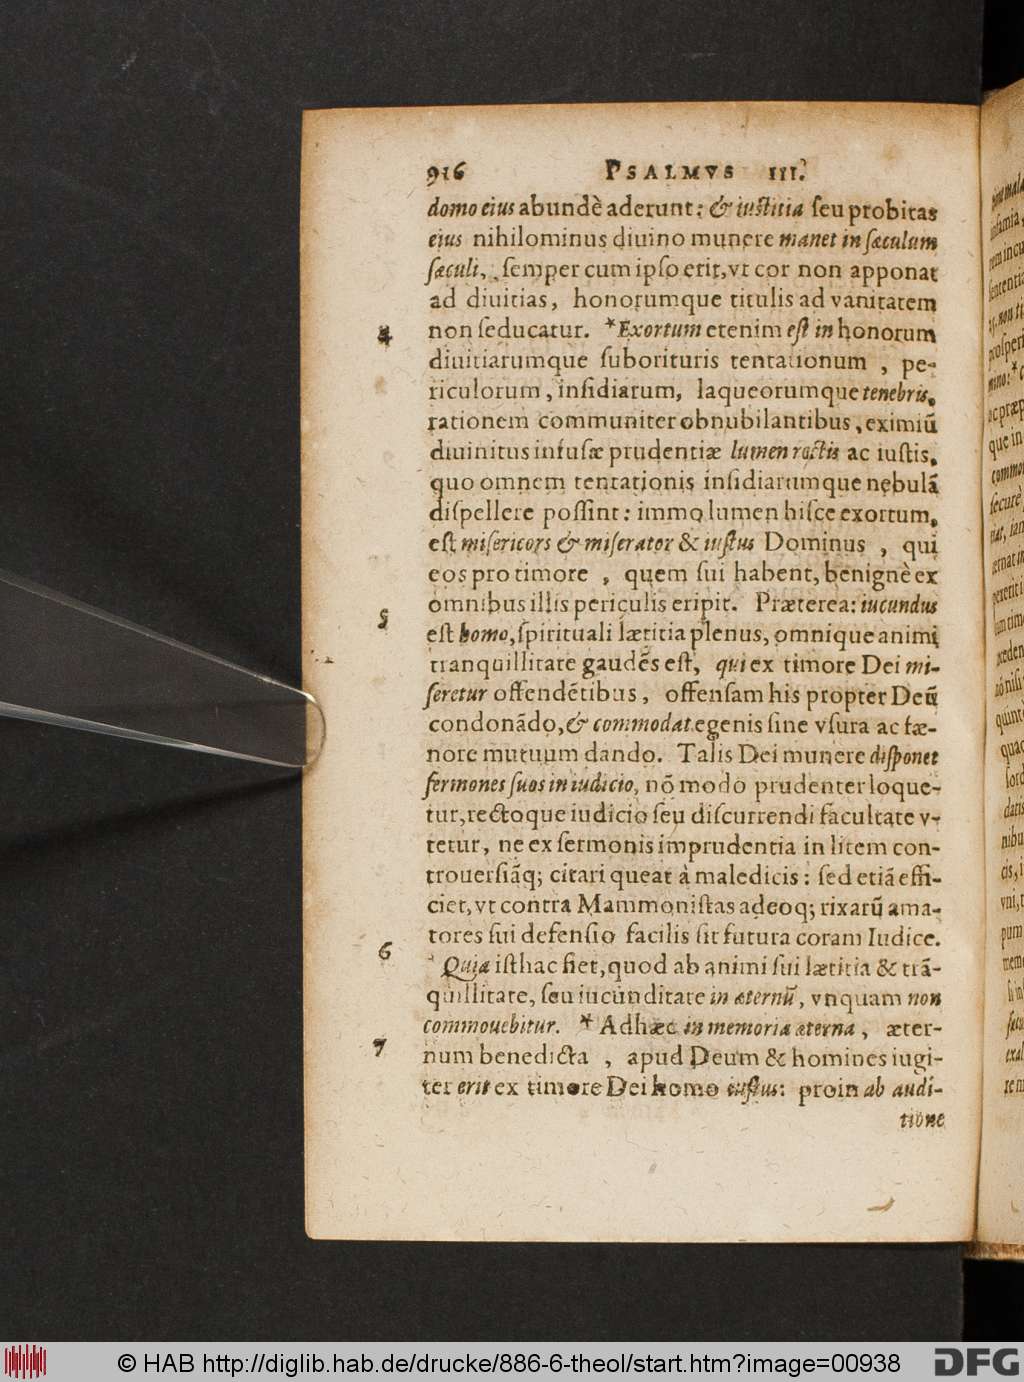 916 PSALMVS III.
domo eius abundè aderunt: & iustitia seu probitas
eius nihilominus diuino munere manet in sæculum
sæculi, semper cum ipso erit, vt cor non apponat
ad diuitias, honorumque titulis ad vanitatem
4 non seducatur. *Exortum etenim est in honorum
diuitiarumque suborituris tentationum, pe-
riculorum, insidiarum, laqueorumque tenebris,
rationem communiter obnubilantibus, eximiũ
diuinitus infusæ prudentiæ lumen rectis ac iustis,
quo omnem tentationis insidiarumque nebulã
dispellere possint: immo lumen hisce exortum,
est misericors & miserator & iustus Dominus, qui
eos pro timore, quem sui habent, benignè ex
omnibus illis periculis eripit. Præterea: iucundus
5 est homo, spirituali lætitia plenus, omnique animi
tranquillitate gaudẽs est, qui ex timore Dei mi-
seretur offendẽtibus, offensam his propter Deũ
condonãdo, & commodat egenis sine vsura ac fæ-
nore mutuum dando. Talis Dei munere disponet
sermones suos in iudicio, nõ modo prudenter loque-
tur, rectoque iudicio seu discurrendi facultate v-
tetur, ne ex sermonis imprudentia in litem con-
trouersiãq; citari queat à maledicis: sed etiã effi-
ciet, vt contra Mammonistas adeoq; rixarũ ama-
tores sui defensio facilis sit futura coram Iudice.
6 Quia isthac fiet, quod ab animi sui lætitia & trã-
quillitate, seu iucunditate in æternũ, vnquam non
commouebitur. * Adhæc in memoria æterna, æter-
7 num benedicta, apud Deum & homines iugi-
ter erit ex timore Dei homo iustus: proin ab audi-
tione
© HAB http://diglib.hab.de/drucke/886-6-theol/start.htm?image=00938
DFG